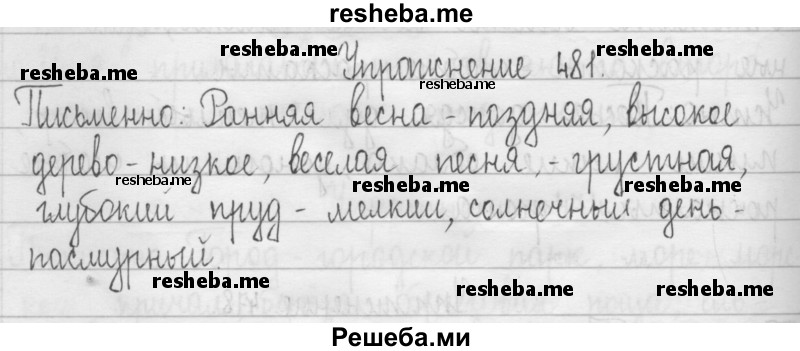 resheba.me
resheba.me resheba.me
Упражнение 481.
resheba.me resheba.me
Письменно: Ранняя весна - поздняя, высокое
дерево - низкое, веселая песня, - грустная,
resheba.me resheba.me resheba.me
глубокий пруд - мелкий, солнечный день -
пасмурный.
resheba.me resheba.me resheba.me
Решеба.ми